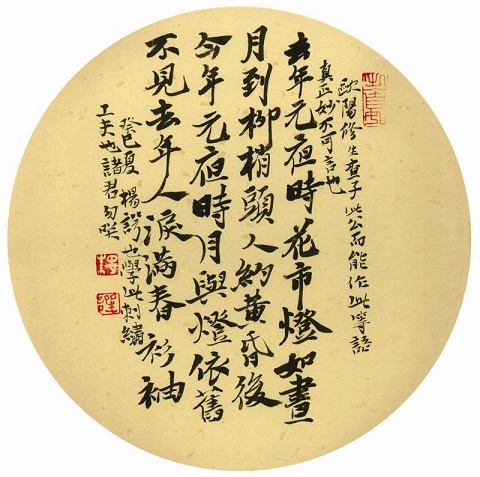 歐陽修生查子此公而能作此等語
真正妙不可言也
去年元夜時花市燈如晝
月到柳梢頭人約黃昏後
今年元夜時月與燈依舊
不見去年人淚滿春衫袖
癸巳夏楊也學此刺繡
工夫也諸君勿咲